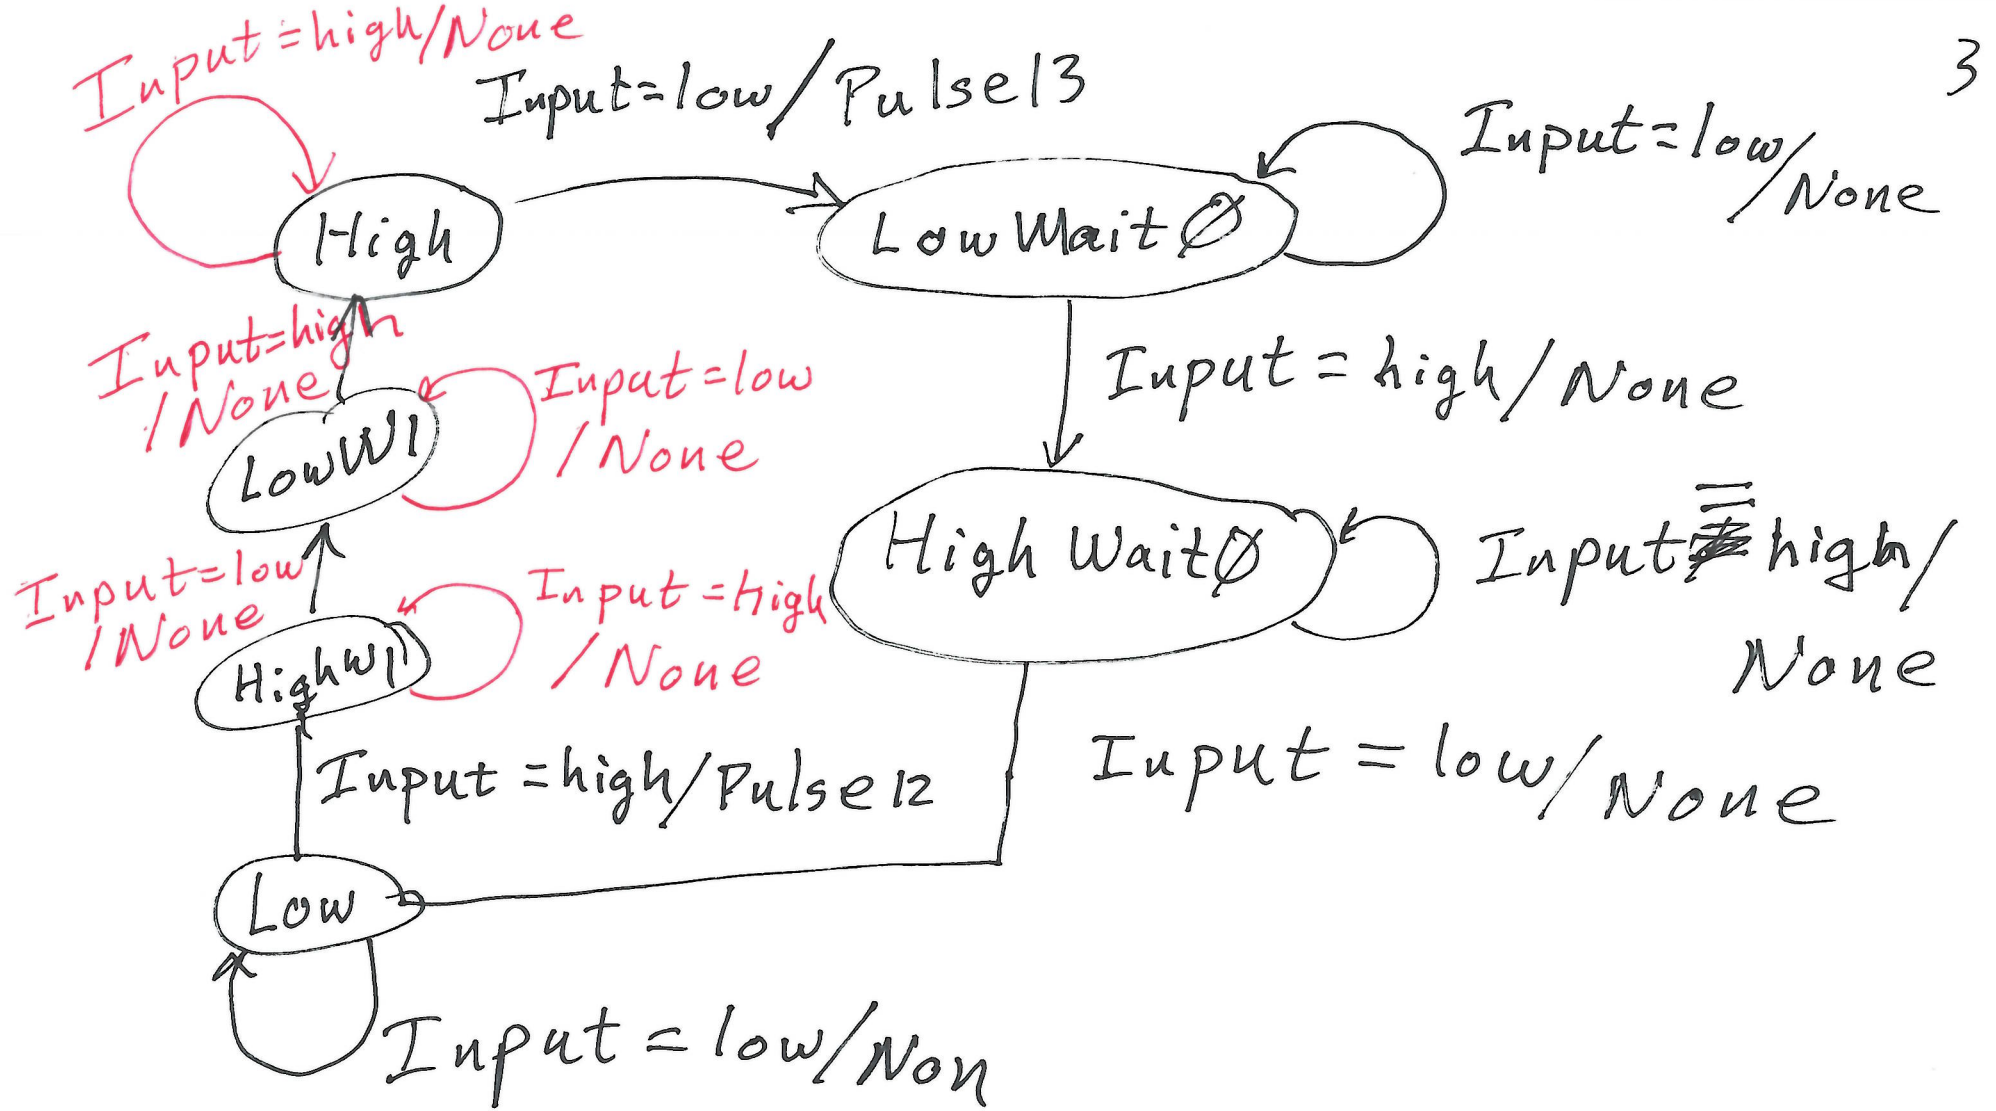 Input=high/None
3
Input=low/Pulse13
Input=low/
None
High
LowWait0
Input=high
/None
Input=low
/None
Input=high/None
LowW1
HighWait0
Input=high/
None
Input=low
/None
Input=high
/None
HighW1
Input=high/Pulse12
Input=low/None
Low
Input=low/Non